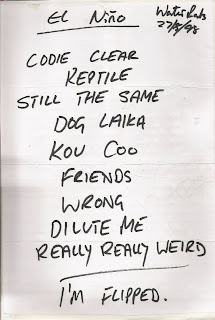 El Niño
Water Rats
27/5/98
CODIE CLEAR
REPTILE
STILL THE SAME
DOG LAIKA
KOU COO
FRIENDS
WRONG
DILUTE ME
REALLY REALLY WEIRD
I'M FLIPPED.